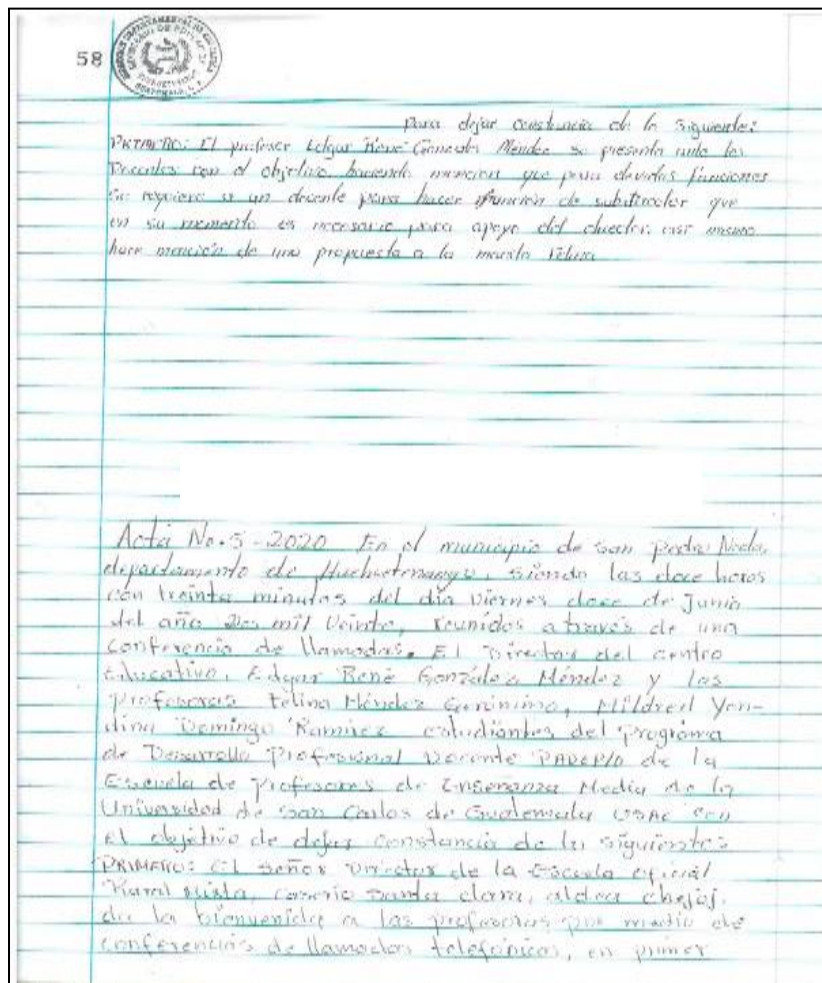 58
para dejar constancia de lo siguiente:
PRIMERO: El profesor Edgar René González Méndez se presenta ante los
Docentes con el objetivo haciendo mención que para devidas funciones
Se requiere a un docente para hacer función de subdirector que
en su momento es necesario para apoyo del director. asi mismo
hace mención de una propuesta a la maestra Felina
Acta No. 5-2020 En el municipio de San Pedro Necta,
departamento de Huehuetenango, siendo las doce horas
con treinta minutos del día Viernes doce de Junio
del año Dos mil Veinte, reunidos através de una
conferencia de llamadas. El Director del centro
Educativo, Edgar René González Méndez y las
Profesoras Felina Méndez Gerónimo, Mildred Yen-
dina Domingo Ramírez estudiantes del programa
de Desarrollo Profesional Docente PADEP/D de la
Escuela de Profesores de Enseñanza Media de la
Universidad de San Carlos de Guatemala USAC con
el objetivo de dejar constancia de lo siguiente:
PRIMERO: El señor Director de la Escuela oficial
Rural Mixta, caserío Santa clara, aldea chejoj,
da la bienvenida a las profesoras por medio de
conferencias de llamadas telefónicas, en primer